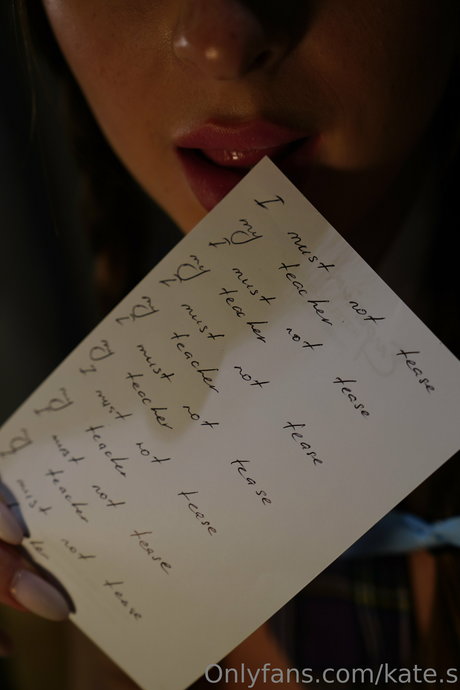 I must not tease
my teacher
I must not tease
my teacher
I must not tease
my teacher
I must not tease
my teacher
I must not tease
my teacher
I must not tease
my teacher
must not tease
Onlyfans.com/kate.s